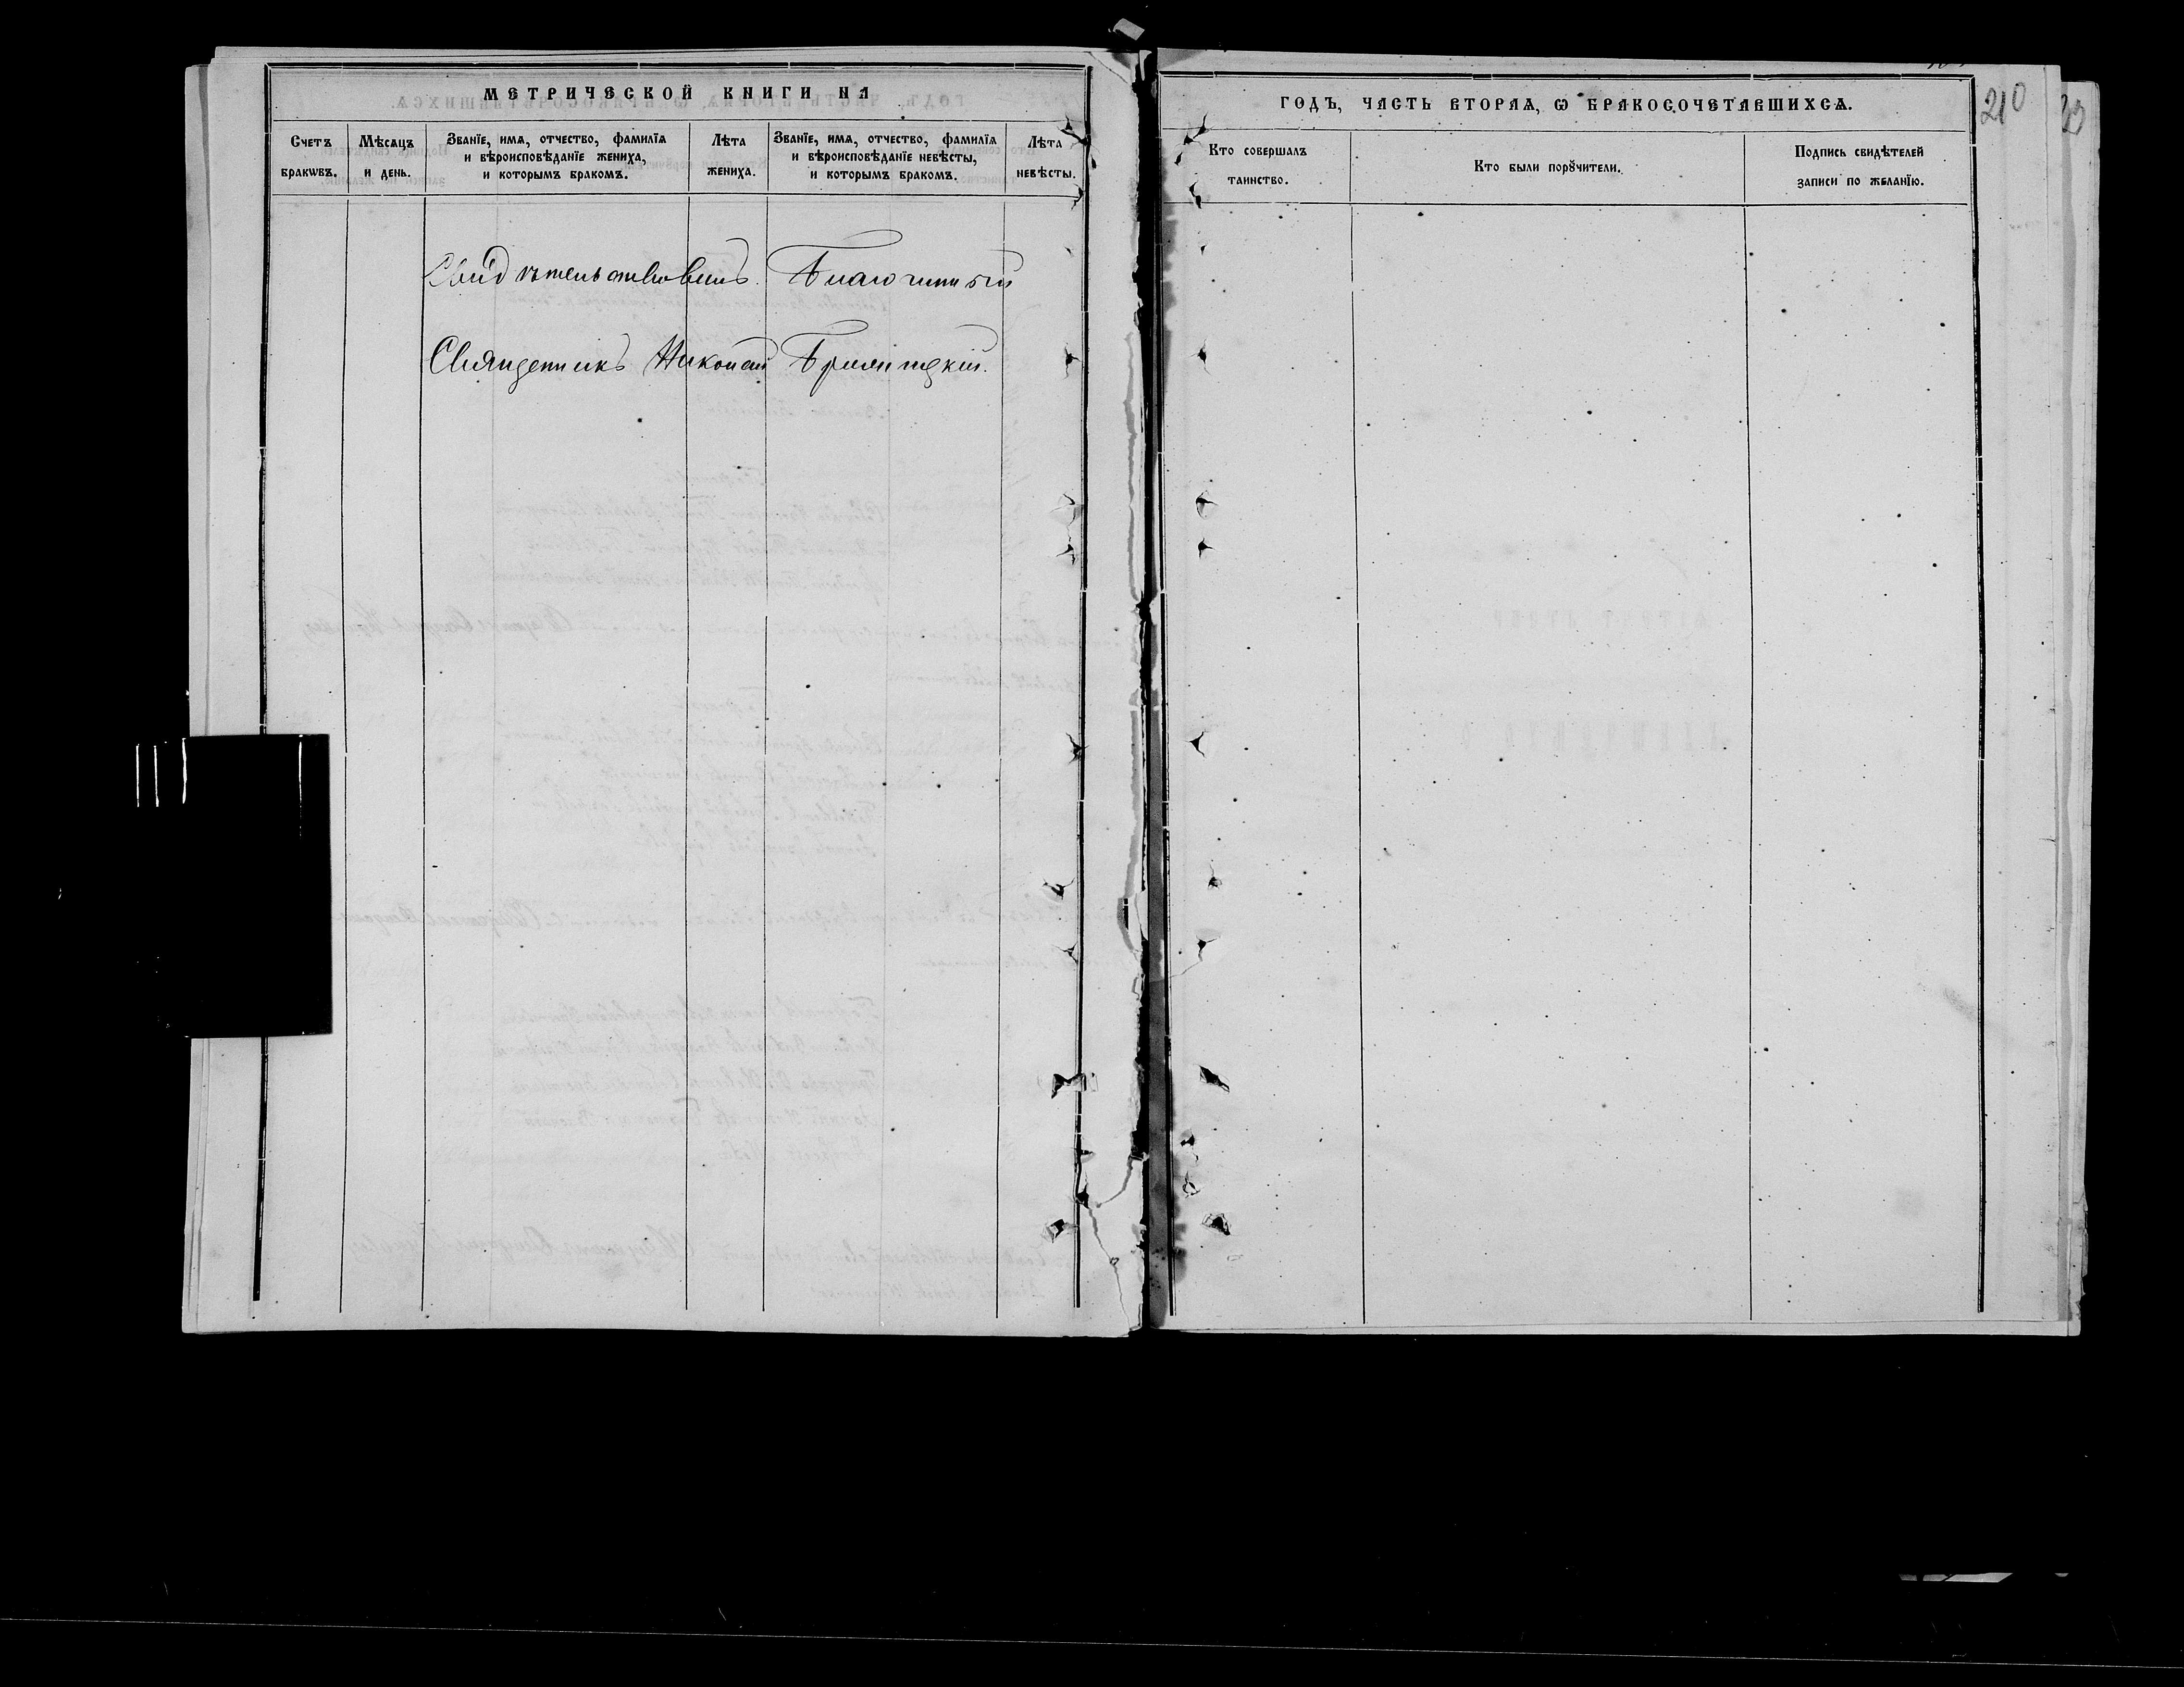 МЕТРИЧЕСКОЙ КНИГИ НА
Счетъ бракѡвъ.
Мѣсѧцъ и день.
Званїе, имѧ, отчество, фамилїѧ
и вѣроисповѣданїе жениха,
и которымъ бракомъ.
Лѣта жениха.
Званїе, имѧ, отчество, фамилїѧ
и вѣроисповѣданїе невѣсты,
и которымъ бракомъ.
Лѣта невѣсты.
Свидѣтельствовалъ Благочинный
Священникъ Николай
ГОДЪ, ЧАСТЬ ВТОРАѦ, Ѡ БРАКОСОЧЕТАВШИХСѦ.
210
Кто совершалъ
таинство.
Кто были порꙋчители.
Подпись свидѣтелей
записи по желанїю.